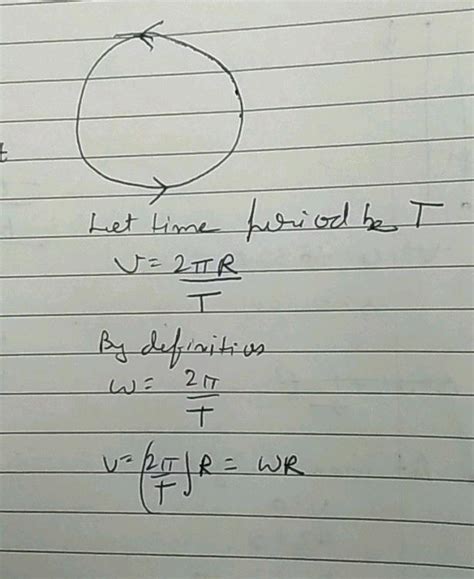 t
Let time period be T
V = 2πR
T
By definition
ω = 2π
T
V = (2π/T) R = ωR